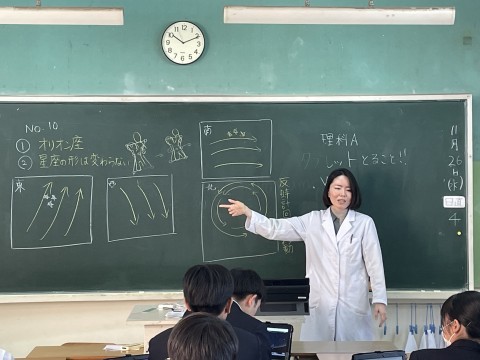 No. 10
① オリオン座
② 星座の形は変わらない
南
東
西
北
反時計
理科A
タブレットとること!!
11月26日(水)
日直
4